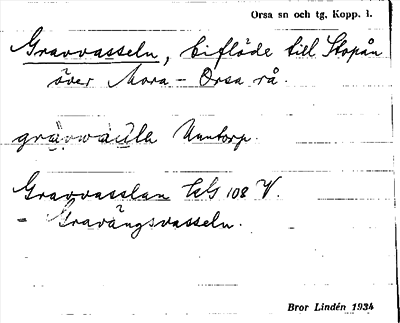 Orsa sn och tg. Kopp. l.
Gravvasseln, biflöde till Stopån
över Mora - Orsa rå.
Nuntorp.
Gravvasslan 108 V.
= Gravängsvasseln.
Bror Lindén 1934